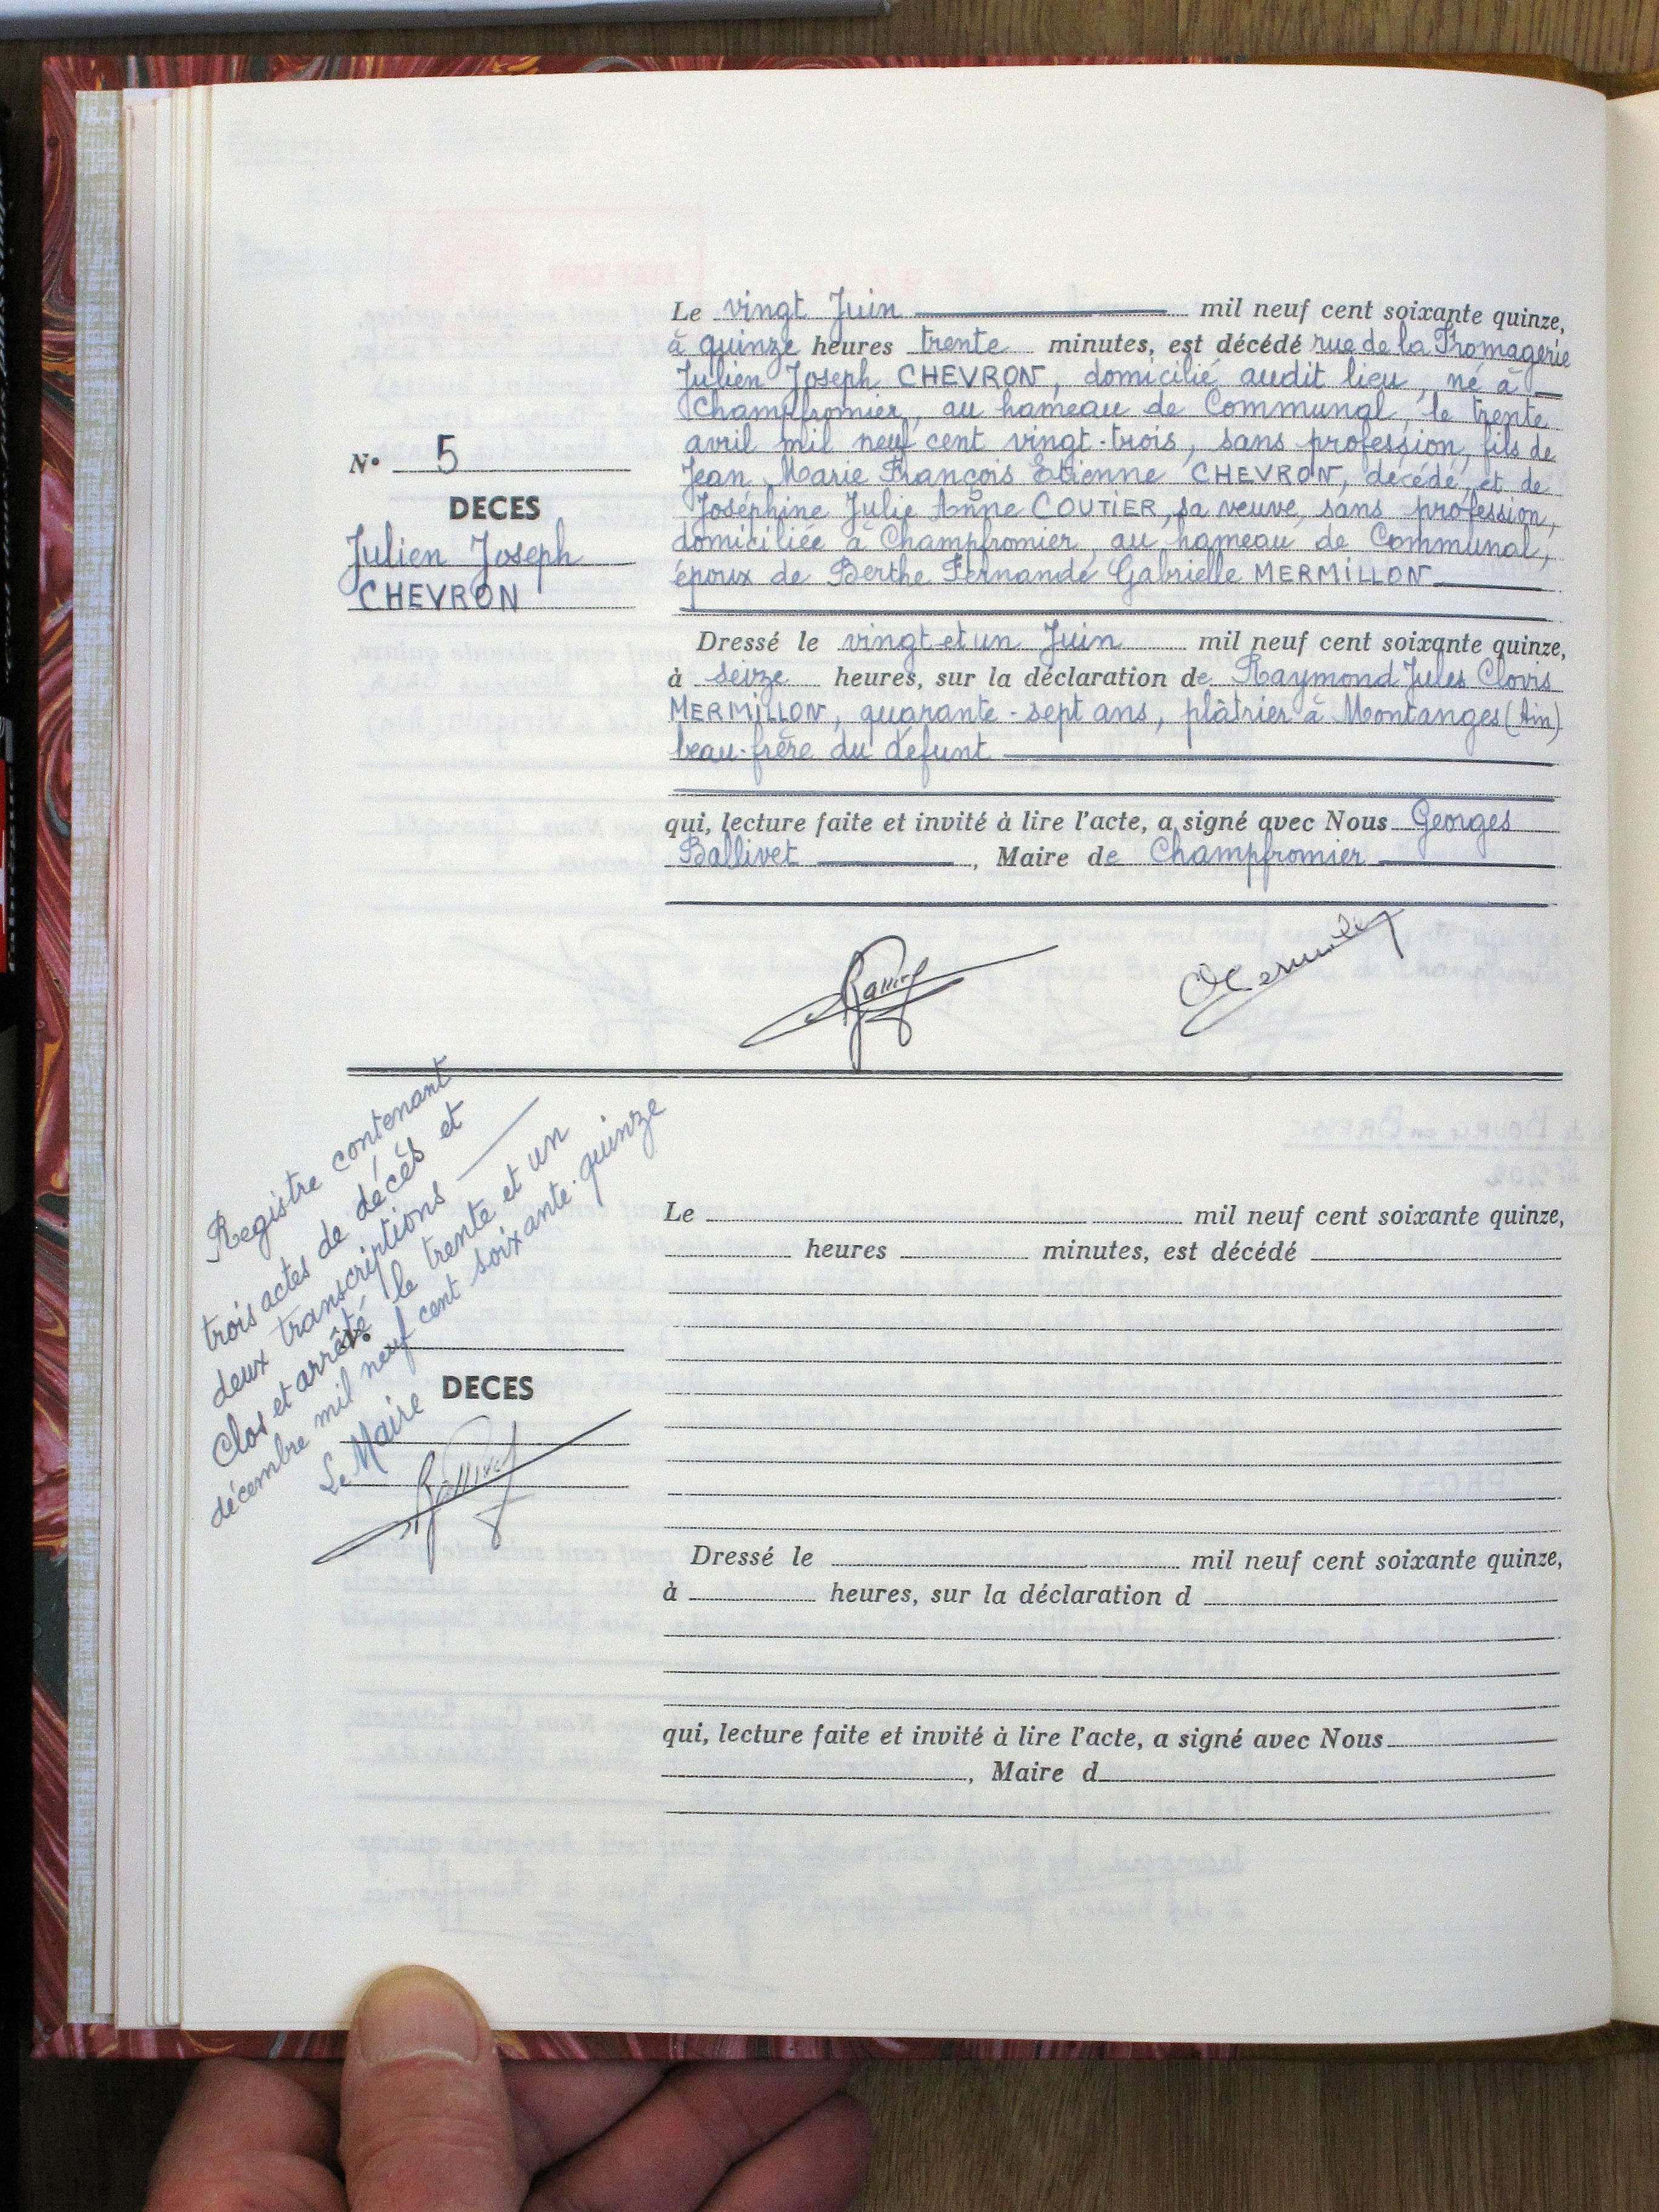 N° 5
DECES
Julien Joseph
CHEVRON
Le vingt Juin mil neuf cent soixante quinze,
à quinze heures trente minutes, est décédé rue de la Fromagerie
Julien Joseph CHEVRON, domicilié audit lieu, né à
Champfromier, au hameau de Communal, le trente
avril mil neuf cent vingt-trois, sans profession, fils de
Jean Marie François Etienne CHEVRON, décédé, et de
Joséphine Julie Anne COUTIER, sa veuve, sans profession,
domiciliée à Champfromier, au hameau de Communal,
époux de Berthe Fernande Gabrielle MERMILLON
Dressé le vingt et un Juin mil neuf cent soixante quinze,
à seize heures, sur la déclaration de Raymond Jules Clovis
MERMILLON, quarante-sept ans, plâtrier à Montanges (Ain)
beau-frère du défunt
qui, lecture faite et invité à lire l'acte, a signé avec Nous Georges
Ballivet, Maire de Champfromier
Registre contenant
trois actes de décès et
deux transcriptions
Clos et arrêté, le trente et un
décembre mil neuf cent soixante-quinze
Le Maire
DECES
Le mil neuf cent soixante quinze,
heures minutes, est décédé
Dressé le mil neuf cent soixante quinze,
à heures, sur la déclaration d
qui, lecture faite et invité à lire l'acte, a signé avec Nous
, Maire d